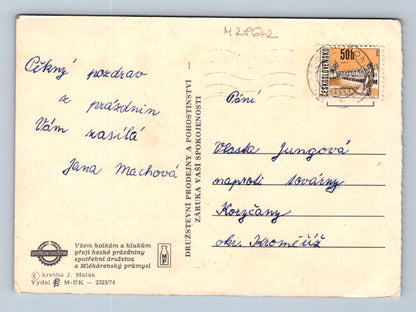 M 21642
Pěkný pozdrav
z prázdnin
Vám zasílá
Jana Machová
Všem holkám a klukům
přejí hezké prázdniny
spotřební družstva
a Mlékárenský průmysl
MP
© kresba J. Malák
Vydal M-ÚK — 2323/74
DRUŽSTEVNÍ PRODEJNY A POHOSTINSTVÍ —
ZÁRUKA VAŠÍ SPOKOJENOSTI
ČESKOSLOVENSKO
50h
Paní
Vlasta Jungová
naproti továrny
Koryčany
okr. Kroměříž